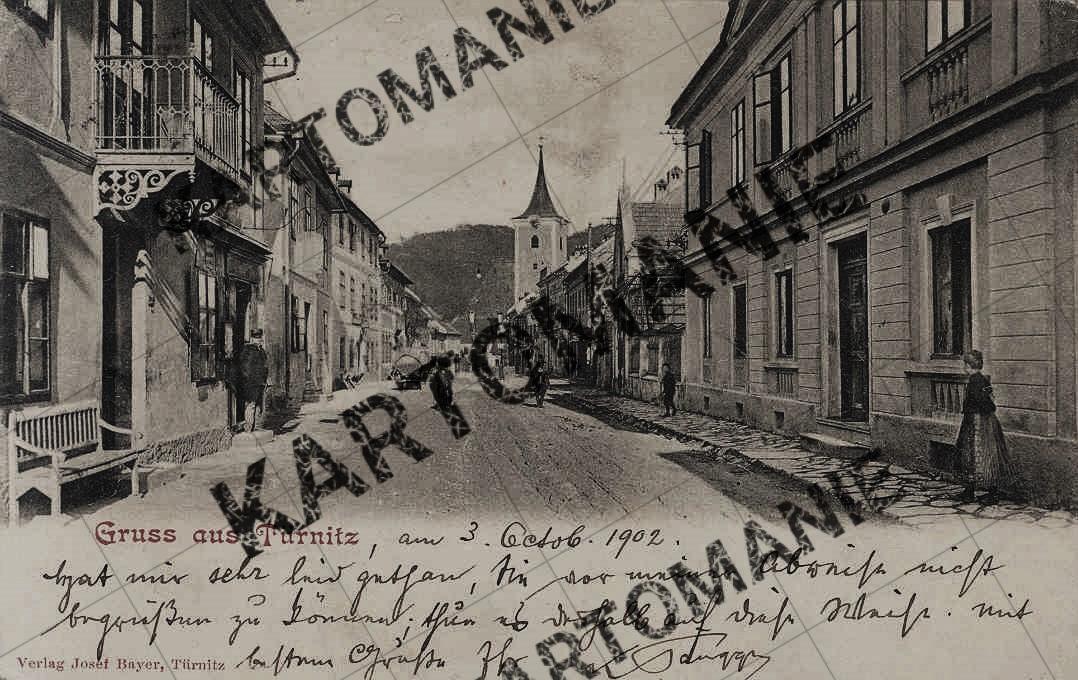 KARTOMANIE
KARTOMANIE
KARTOMANIE
KARTOMANIE
Gruss aus Türnitz, am 3. Octob. 1902.
Hat mir sehr leid gethan, Sie vor meiner Abreise nicht
begrüßen zu können; thue es deshalb auf diese Weise. Mit
Verlag Josef Bayer, Türnitz
besten Grüße Ihr